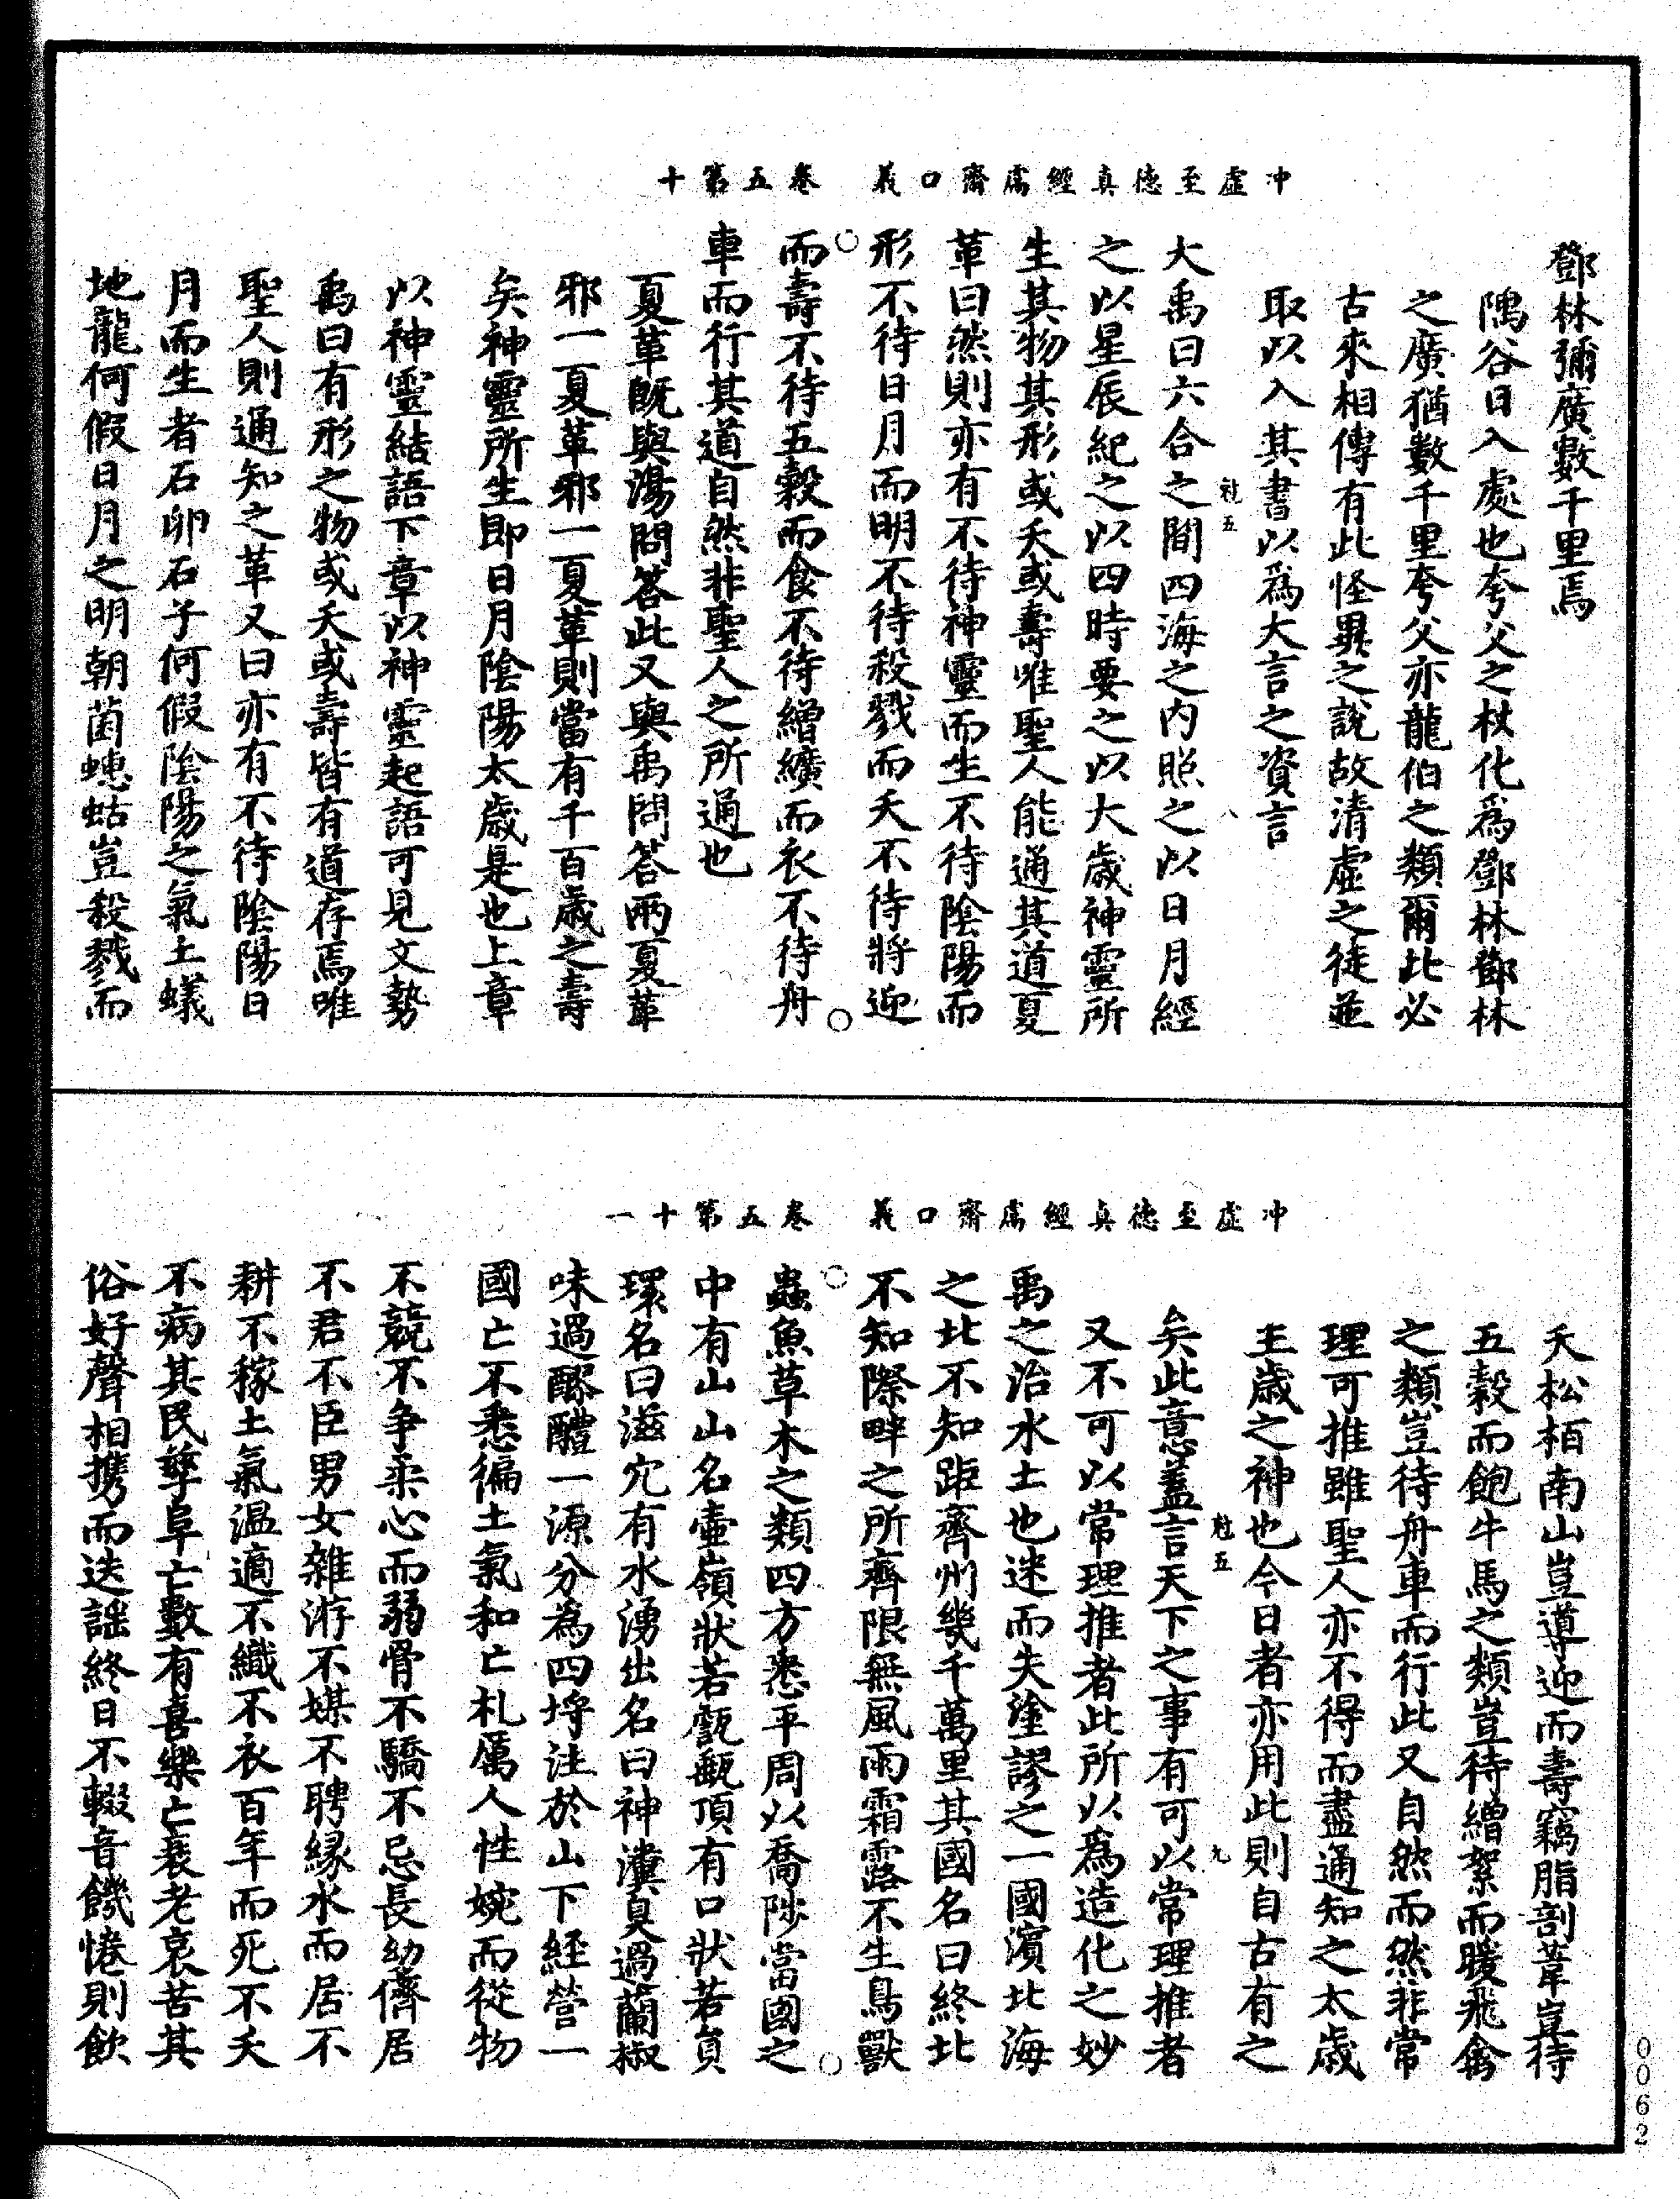 冲虛至德真經鬳齋口義　卷五第十
鄧林彌廣數千里焉
隅谷日入處也夸父之杖化爲鄧林鄧林
之廣猶數千里夸父亦龍伯之類爾此必
古來相傳有此怪異之說故清虛之徒並
取以入其書以爲大言之資言
大禹曰六合之間四海之内照之以日月經
之以星辰紀之以四時要之以大歲神靈所
生其物其形或夭或壽唯聖人能通其道夏
革曰然則亦有不待神靈而生不待陰陽而
形不待日月而明不待殺戮而夭不待將迎
而壽不待五穀而食不待繒纊而衣不待舟
車而行其道自然非聖人之所通也
夏革旣與湯問答此又與禹問答兩夏革
邪一夏革邪一夏革則當有千百歲之壽
矣神靈所生即日月陰陽太歲是也上章
以神靈結語下章以神靈起語可見文勢
禹曰有形之物或夭或壽皆有道存焉唯
聖人則通知之革又曰亦有不待陰陽日
月而生者石卵石子何假陰陽之氣土蟻
地龍何假日月之明朝菌蟪蛄豈殺戮而
冲虛至德真經鬳齋口義　卷五第十一
夭松栢南山豈導迎而壽竊脂剖葦豈待
五穀而飽牛馬之類豈待繒絮而暖飛禽
之類豈待舟車而行此又自然而然非常
理可推雖聖人亦不得而盡通知之太歲
主歲之神也今日者亦用此則自古有之
矣此意蓋言天下之事有可以常理推者
又不可以常理推者此所以爲造化之妙
禹之治水土也迷而失塗謬之一國濱北海
之北不知距齊州幾千萬里其國名曰終北
不知際畔之所齊限無風雨霜露不生鳥獸
蟲魚草木之類四方悉平周以喬陟當國之
中有山山名壷嶺狀若甔甀頂有口狀若貟
環名曰滋穴有水湧出名曰神瀵臭過蘭椒
味過醪醴一源分為四埒注於山下經營一
國亡不悉徧土氣和亡札厲人性婉而從物
不競不争柔心而弱骨不驕不忌長幼儕居
不君不臣男女雜游不媒不聘緣水而居不
耕不稼土氣温適不織不衣百年而死不夭
不病其民孳阜亡數有喜樂亡衰老哀苦其
俗好聲相携而迭謡終日不輟音饑惓則飲
0062